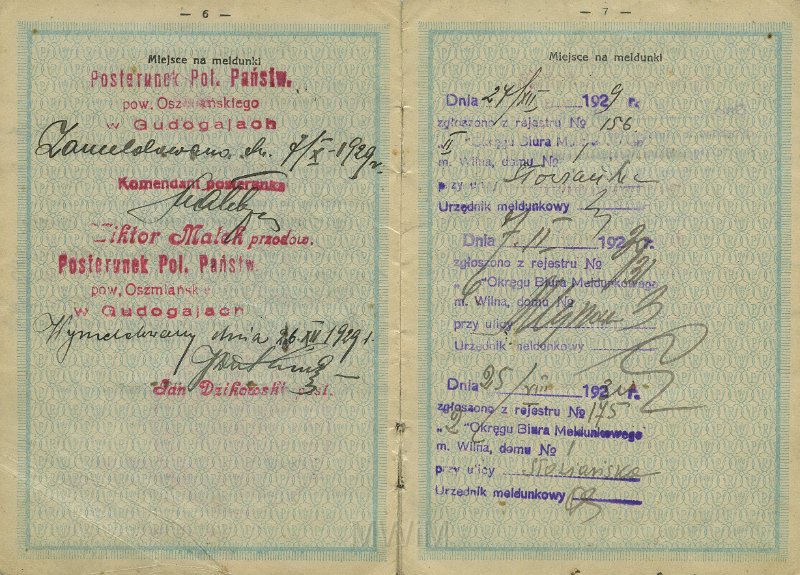 — 6 —
Miejsce na meldunki
Posterunek Pol. Państw.
pow. Oszmiańskiego
w Gudogajach
Zameldowano dn. 7/X-1929 r.
Komendant posterunku
Wiktor Małek przodow.
Posterunek Pol. Państw.
pow. Oszmiańskie
w Gudogajach
Wymeldowany dnia 26 XII 1929 r.
Jan Dzikowski post.
— 7 —
Miejsce na meldunki
Dnia 24/XII 1929 r.
zgłoszono z rejestru № 156
„II" Okręgu Biura Meldunkowego
m. Wilna, domu № 1
przy ulicy
Urzędnik meldunkowy
Dnia 7. II 192 r.
zgłoszono z rejestru № 131
„6" Okręgu Biura Meldunkowego
m. Wilna, domu № 3
przy ulicy
Urzędnik meldunkowy
Dnia 25/VIII 1930 r.
zgłoszono z rejestru № 175
„2" Okręgu Biura Meldunkowego
m. Wilna, domu № 1
przy ulicy
Urzędnik meldunkowy
MWM